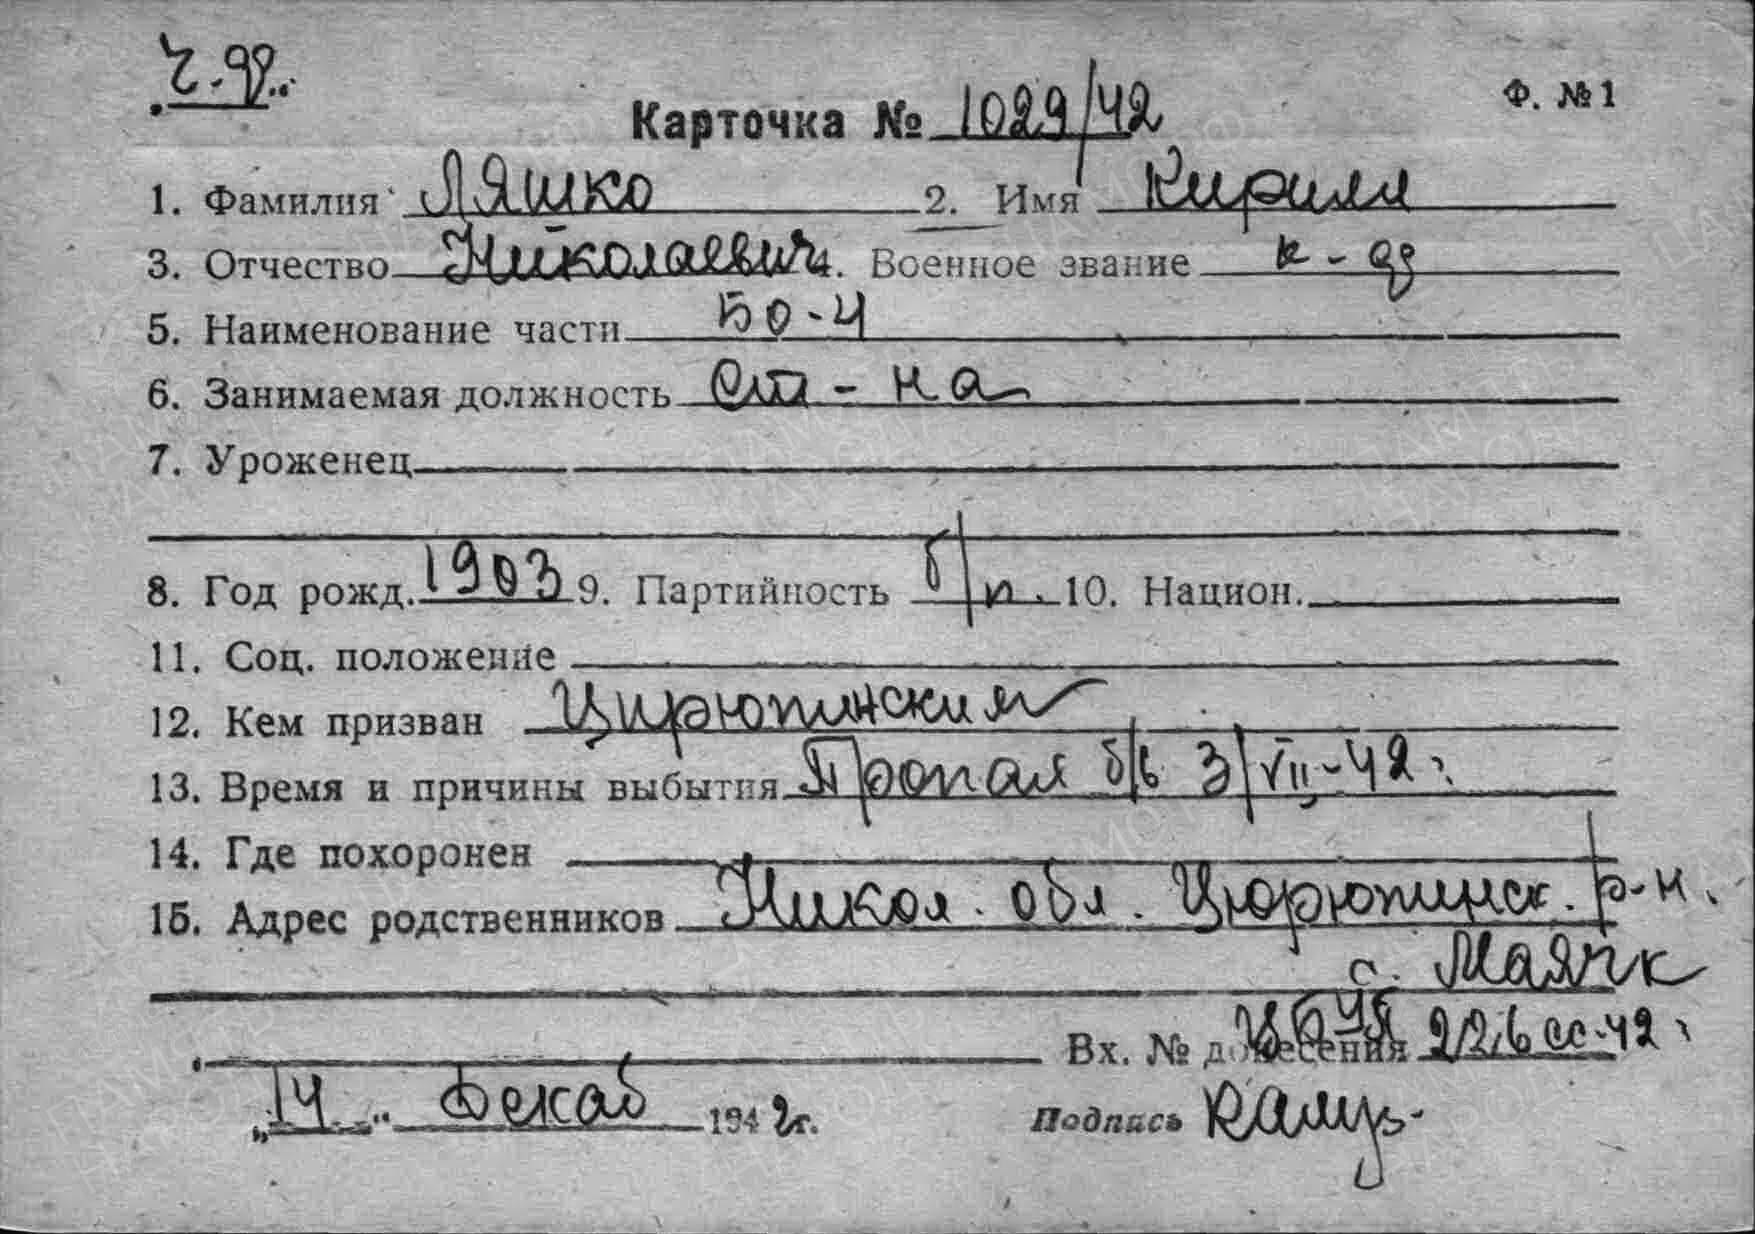 Ч.ф.
Ф. №1
Карточка № 1029/42
1. Фамилия Ляшко 2. Имя Кирилл
3. Отчество Николаевич. Военное звание к-ц
5. Наименование части БО-Ч
6. Занимаемая должность Ст-на
7. Уроженец
8. Год рожд. 1903 9. Партийность б/п. 10. Национ.
11. Соц. положение
12. Кем призван Цирюпинским
13. Время и причины выбытия Пропал б/в 3/VII-42г.
14. Где похоронен
15. Адрес родственников Никол. обл. Цюрюпинск. р-н.
с. Маячк
Вх. № донесения 226сс-42г
„14" Декаб 1942г.
Подпись